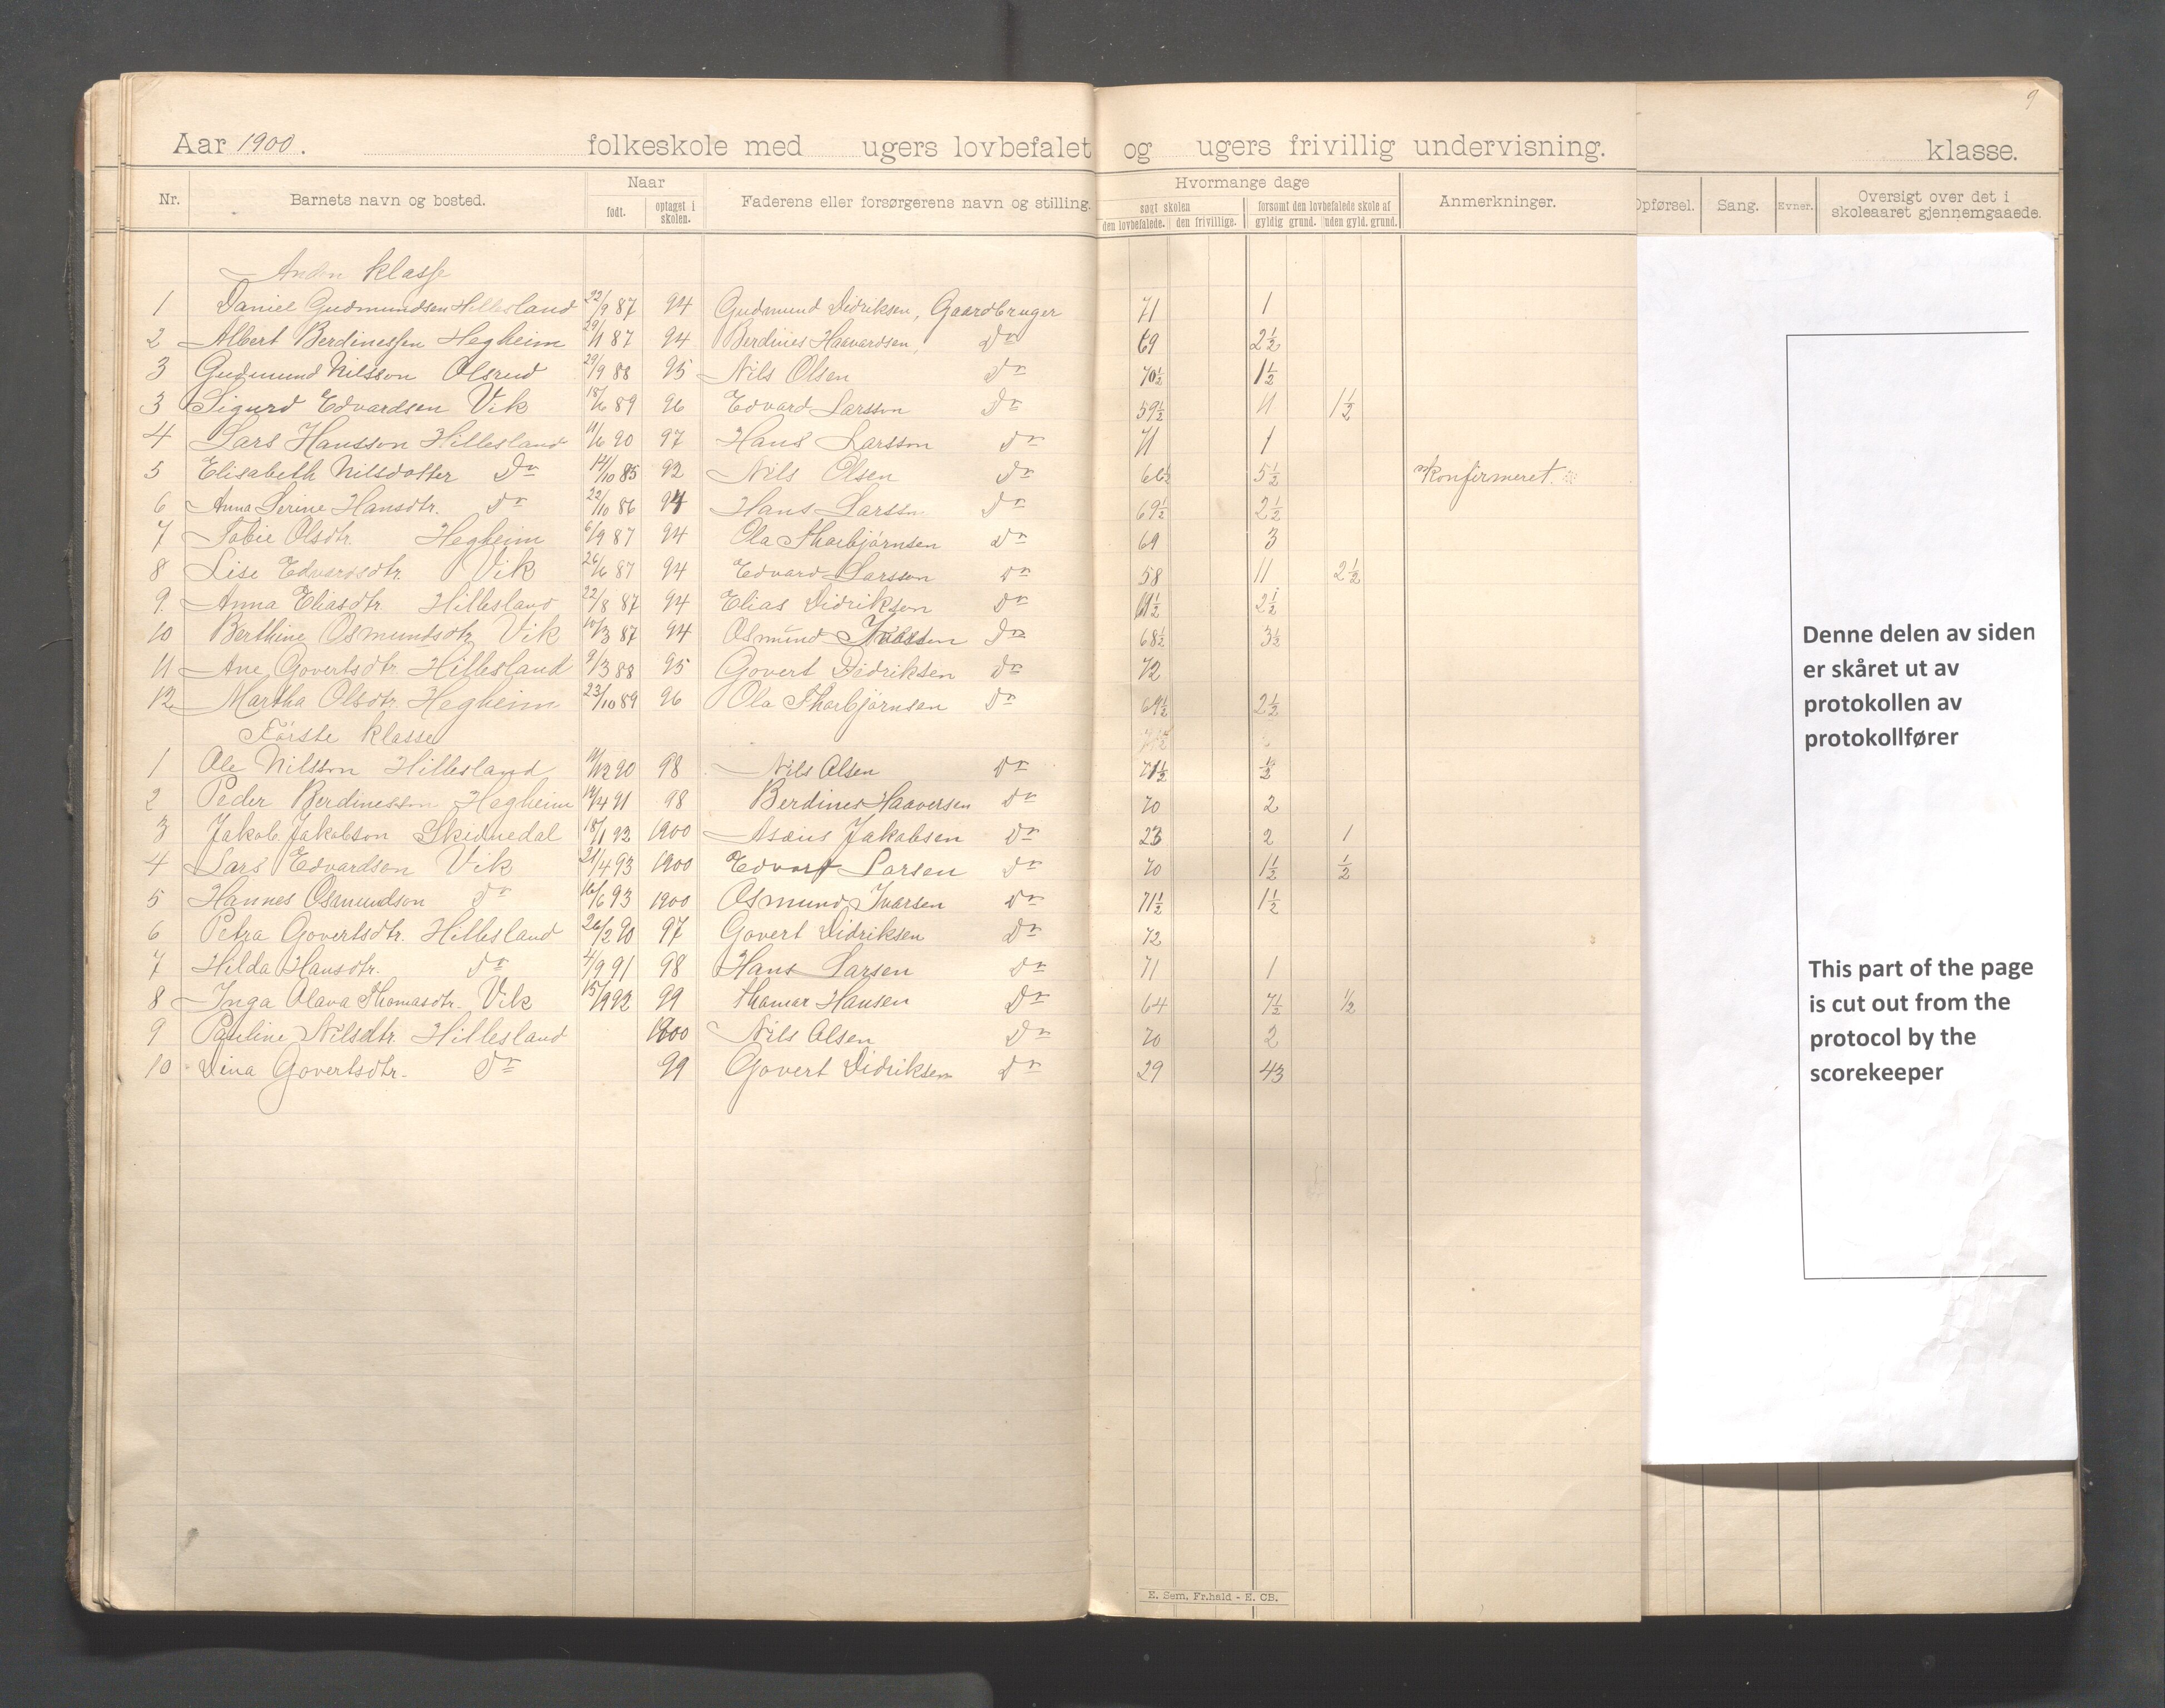 9
Aar 1900. folkeskole med ugers lovbefalet og ugers frivillig undervisning. klasse.
Nr. Barnets navn og bosted. Naar født. optaget i skolen. Faderens eller forsørgerens navn og stilling. Hvormange dage søgt skolen den lovbefalede. den frivillige. forsømt den lovbefalede skole af gyldig grund. uden gyld. grund. Anmerkninger. Opførsel. Sang. Evner. Oversigt over det i skoleaaret gjennemgaaede.
Anden klasse
1 Daniel Gudmundsen Hillesland 22/9 87 94 Gudmund Didriksen, Gaardbruger 71 1
2 Albert Berdinessen Hegheim 29/1 87 94 Berdines Haavardsen, Do 69 2½
3 Gudmund Nilsson Olsrud 29/9 88 95 Nils Olsen Do 70½ 1½
3 Sigurd Edvardsen Vik 18/6 89 96 Edvard Larsson Do 59½ 11 1½
4 Lars Hansson Hillesland 11/6 90 97 Hans Larsson Do 71 1
5 Elisabeth Nilsdotter Do 14/10 85 92 Nils Olsen Do 66½ 5½ Konfirmeret.
6 Anna Serine Hansdtr. Do 22/10 86 94 Hans Larsson Do 69½ 2½
7 Tobie Olsdtr. Hegheim 6/9 87 94 Ola Thorbjørnsen Do 69 3
8 Lise Edvardsdtr. Vik 26/6 87 94 Edvard Larsson Do 58 11 2½
9. Anna Eliasdtr. Hillesland 22/8 87 94 Elias Didriksen Do 69½ 2½
10 Berthine Osmundsdtr. Vik 10/3 87 94 Osmund Do 68½ 3½
11 Ane Govertsdtr. Hillesland 9/3 88 95 Govert Didriksen Do 72
12 Martha Olsdtr. Hegheim 23/10 89 96 Ola Thorbjørnsen Do 69½ 2½
Første klasse
1 Ole Nilsson Hillesland 90 98 Nils Olsen Do 71½ ½
2 Peder Berdinesson Hegheim 14/4 91 98 Berdines Haaversen Do 70 2
3 Jakob Jakobson Skeinedal 18/1 92 1900 Asæus Jakobsen Do 23 2 1
4 Lars Edvardson Vik 21/4 93 1900 Edvart Larsen Do 70 1½ ½
5 Hannes Osmundson Do 16/6 93 1900 Osmund Ivarsen Do 71½ 1½
6 Petra Govertsdtr. Hillesland 26/2 90 97 Govert Didriksen Do 72
7 Hilda Hansdtr. Do 4/9 91 98 Hans Larsen Do 71 1
8 Inga Olava Thomasdtr. Vik 15/9 92 99 Thomas Hansen Do 64 7½ ½
9 Pauline Nilsdtr. Hillesland 1900 Nils Olsen Do 70 2
10 Dina Govertsdtr. Do 99 Govert Didriksen Do 29 43
E. Sem, Fr.hald - E. CB.
Denne delen av siden
er skåret ut av
protokollen av
protokollfører
This part of the page
is cut out from the
protocol by the
scorekeeper